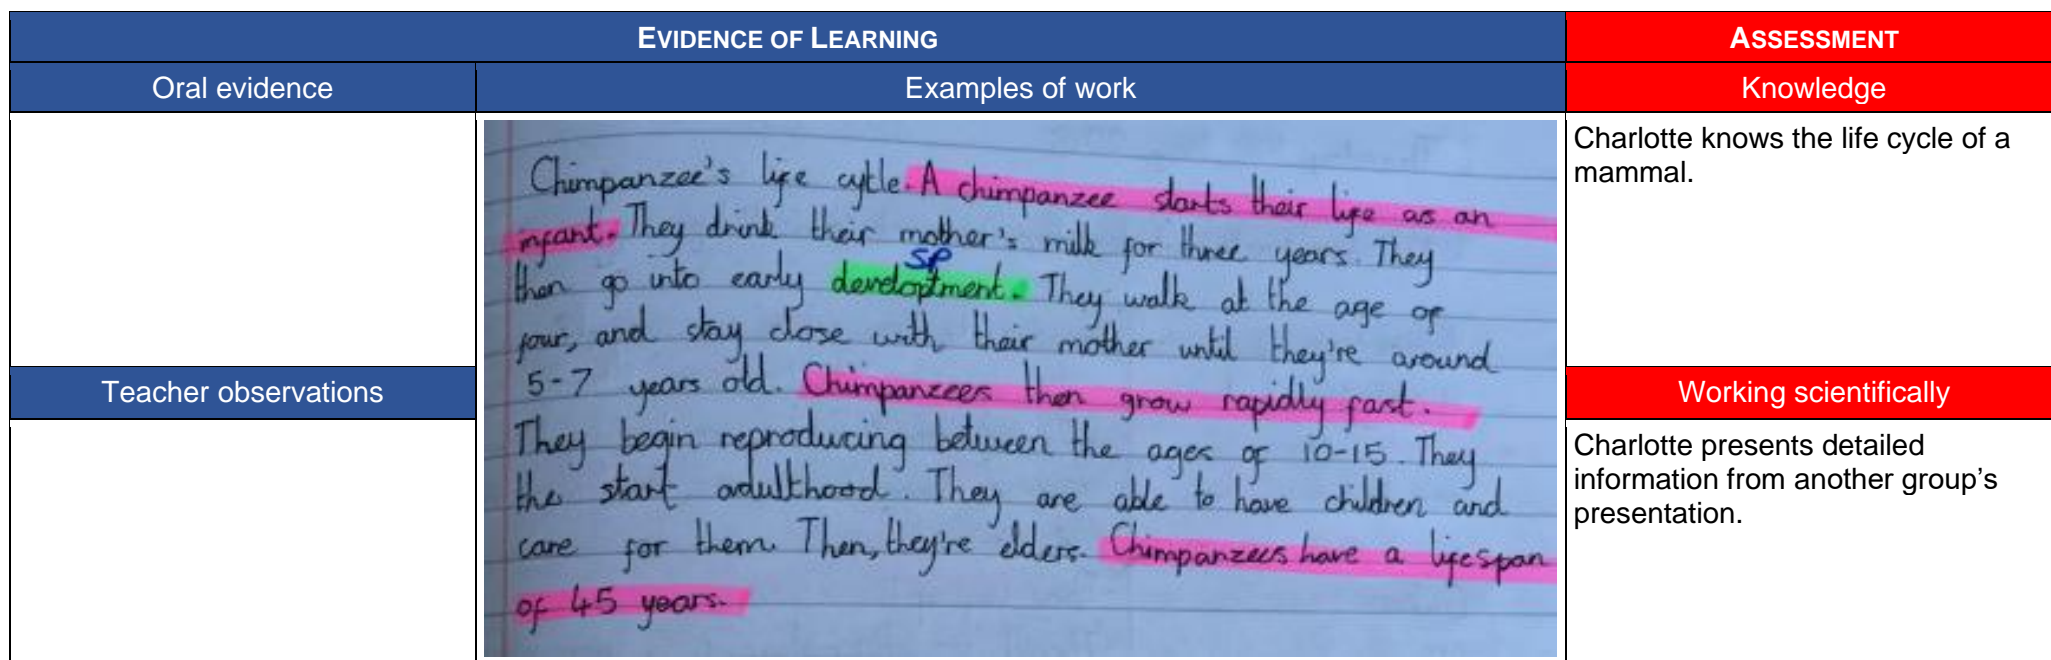 EVIDENCE OF LEARNING
ASSESSMENT
Oral evidence
Examples of work
Knowledge
Chimpanzee's life cytle. A chimpanzee starts their life as an
infant. They drink their mother's milk for three years. They
SP
then go into early developtment. They walk at the age of
four, and stay close with their mother until they're around
5-7 years old. Chimpanzees then grow rapidly fast.
They begin reproducing between the ages of 10-15. They
the start adulthood. They are able to have children and
care for them. Then, they're elders. Chimpanzees have a lifespan
of 45 years.
Charlotte knows the life cycle of a
mammal.
Teacher observations
Working scientifically
Charlotte presents detailed
information from another group's
presentation.